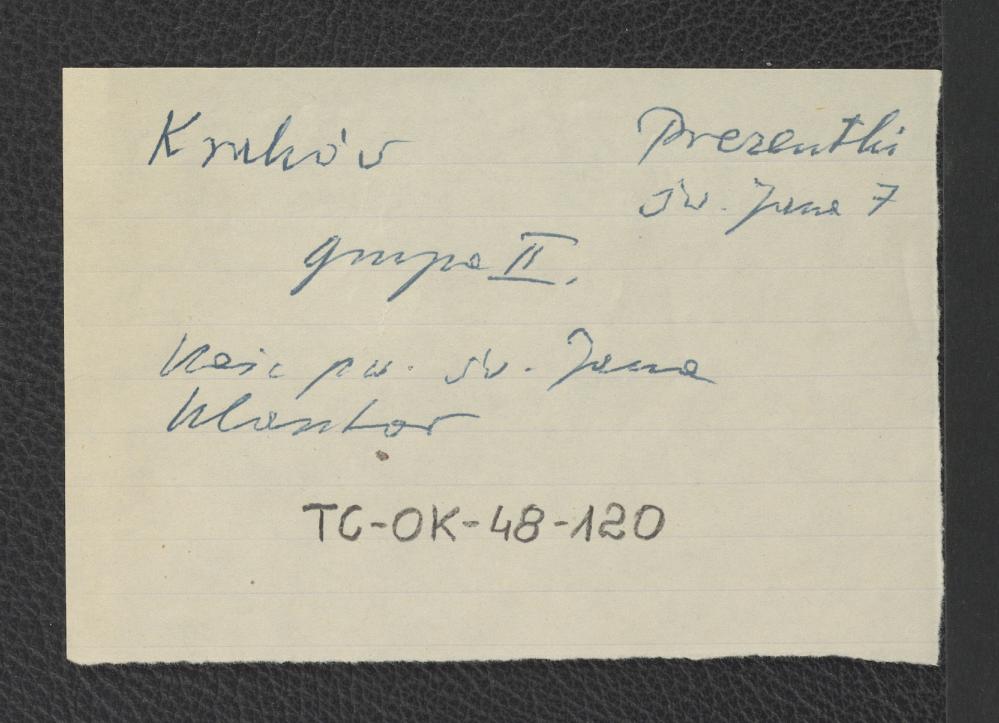 Kraków
Prezentki
św. Jana 7
grupa II.
Kośc pw. św. Jana
Klasztor
TC-OK-48-120